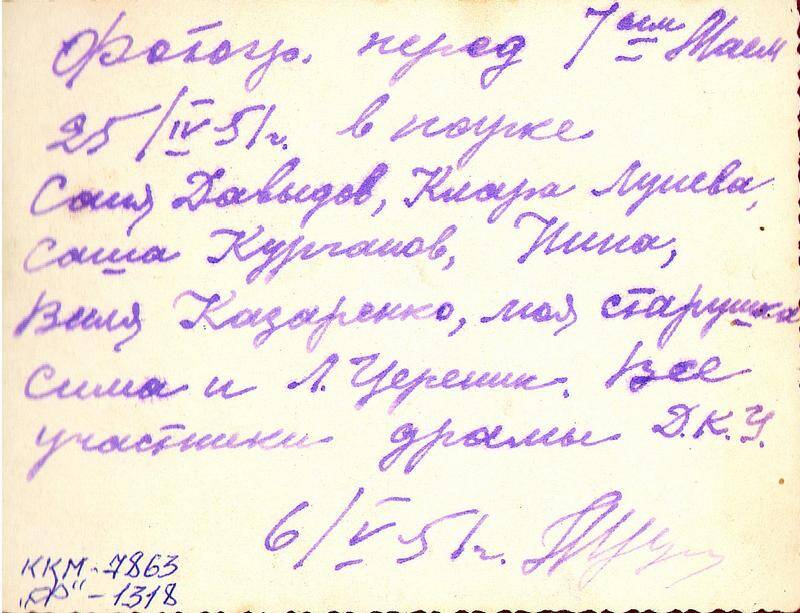 Фотогр. перед 1ым Маем
25/IV 51г. в парке
Саня Давыдов, Клара Лунева,
Саша Курганов, Нина,
Виля Казаренко, моя старушка
Сима и Л. Черепик. Все
участники драмы Д.К.У.
6/V 51г.
ККМ-7863
"ФФ"-1318